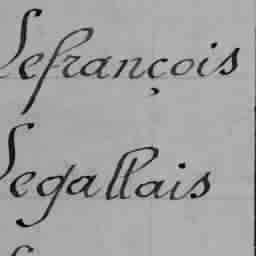 Lefrançois
Legallais